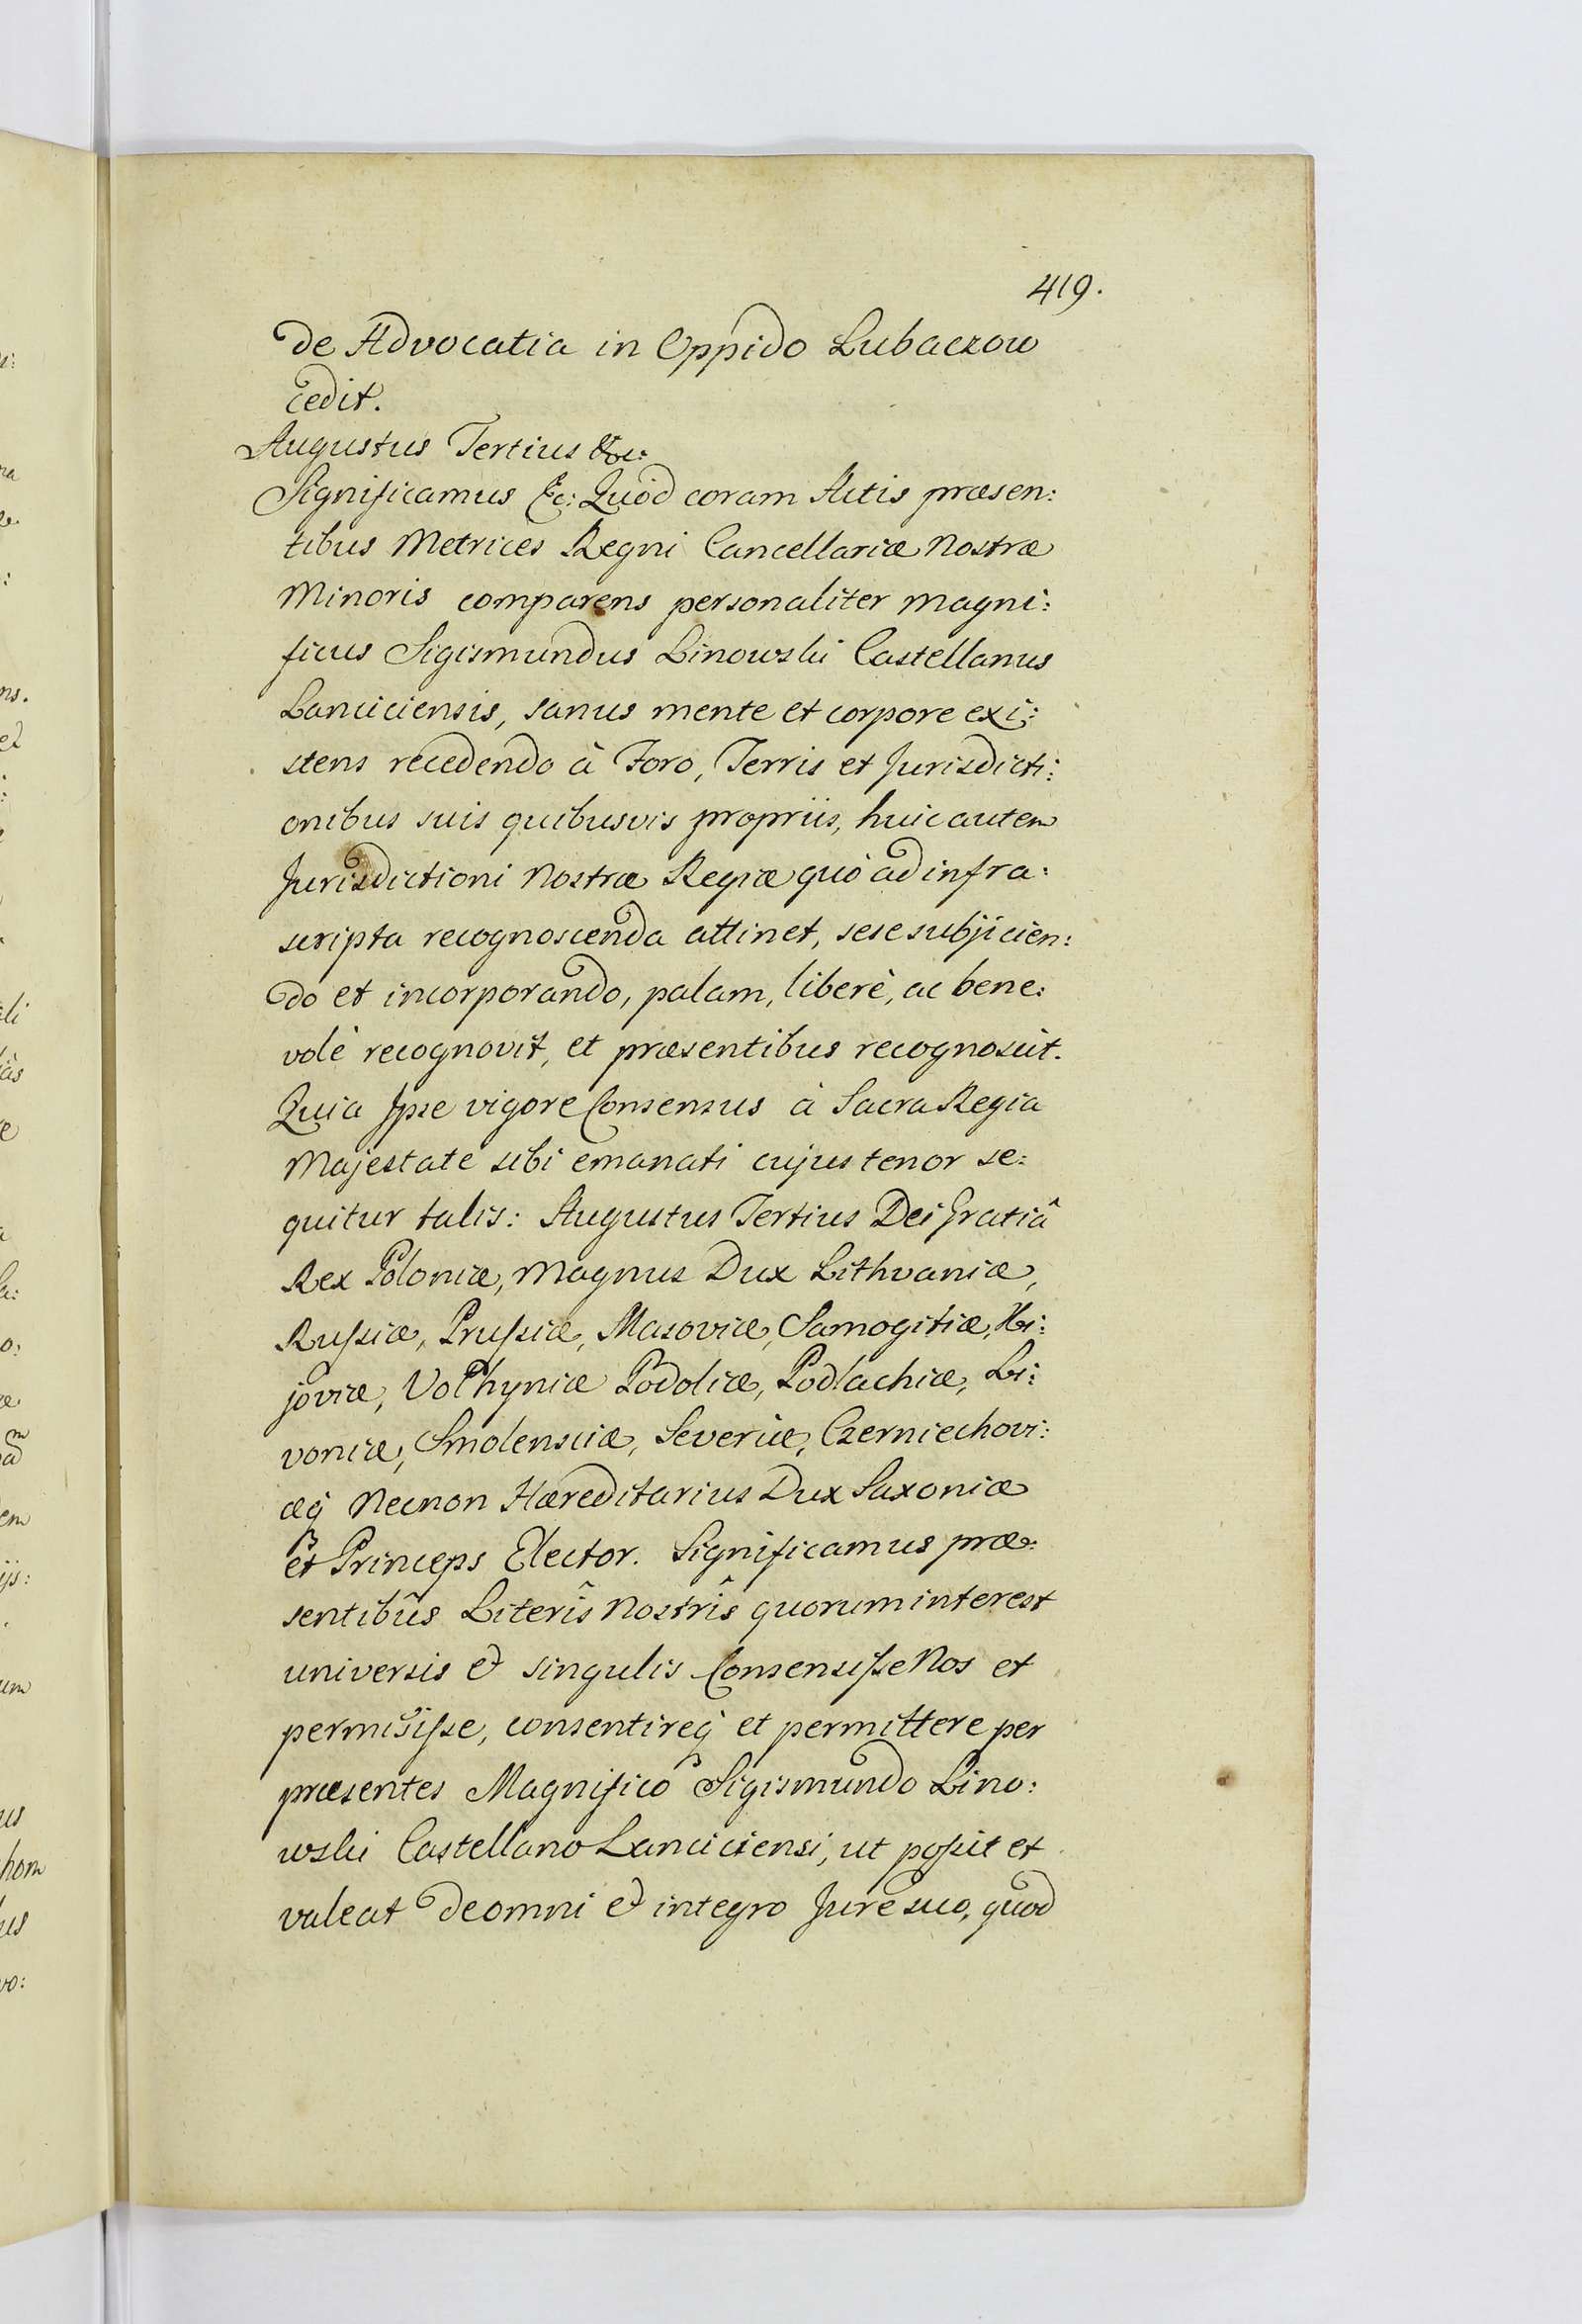 419.
de Advocatia in Oppido Lubaczow
cedit.
Augustus Tertius &c:
Significamus &c: Quòd coram Actis præsen:
tibus Metrices Regni Cancellariæ Nostræ
Minoris comparens personaliter Magni:
ficus Sigismundus Linowski Castellanus
Lanciciensis, sanus mente et corpore exi:
stens recedendo à Foro, Terris et Jurisdicti:
onibus suis quibusvis propriis, huic autem
Jurisdictioni Nostræ Regiæ quò ad infra:
scripta recognoscenda attinet, sese subjicien:
do et incorporando, palam, liberè, ac bene:
volè recognovit, et præsentibus recognoscit.
Quia Ipse vigore Consensus à Sacra Regia
Majestate sibi emanati cujus tenor se:
quitur talis: Augustus Tertius Dei Gratiâ
Rex Poloniæ, Magnus Dux Lithvaniæ,
Rußiæ, Prußiæ, Masoviæ, Samogitiæ, Ki:
joviæ, Volhyniæ Podoliæ, Podlachiæ, Li:
voniæ, Smolensciæ, Severiæ, Czerniechovi:
æq́ Necnon Hæreditarius Dux Saxoniæ
et Princeps Elector. Significamus præ:
sentibûs Literîs Nostrîs quorum interest
universis et singulis Consensiße Nos et
permisiße, consentireq́ et permittere per
præsentes Magnifico Sigismundo Lino:
wski Castellano Lanciciensi, ut poßit et
valeat de omni et integro Jure suo, quod